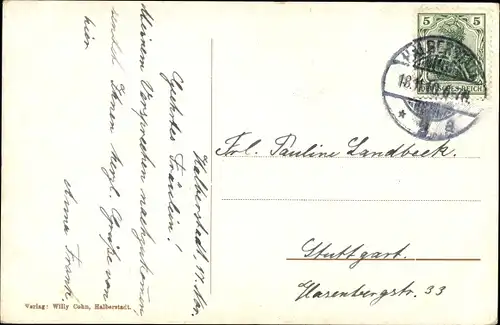 Halberstadt, 17. Nov.
Geehrtes Fräulein!
Meinem Versprechen nachzukommen,
sendet Ihnen herzl. Grüße von
hier
Anna Frank.
5 5
DEUTSCHES REICH
HALBERSTADT
18.11.
* a
Frl. Pauline Landbeck.
Stuttgart.
Hasenbergstr. 33
Verlag: Willy Cohn, Halberstadt.